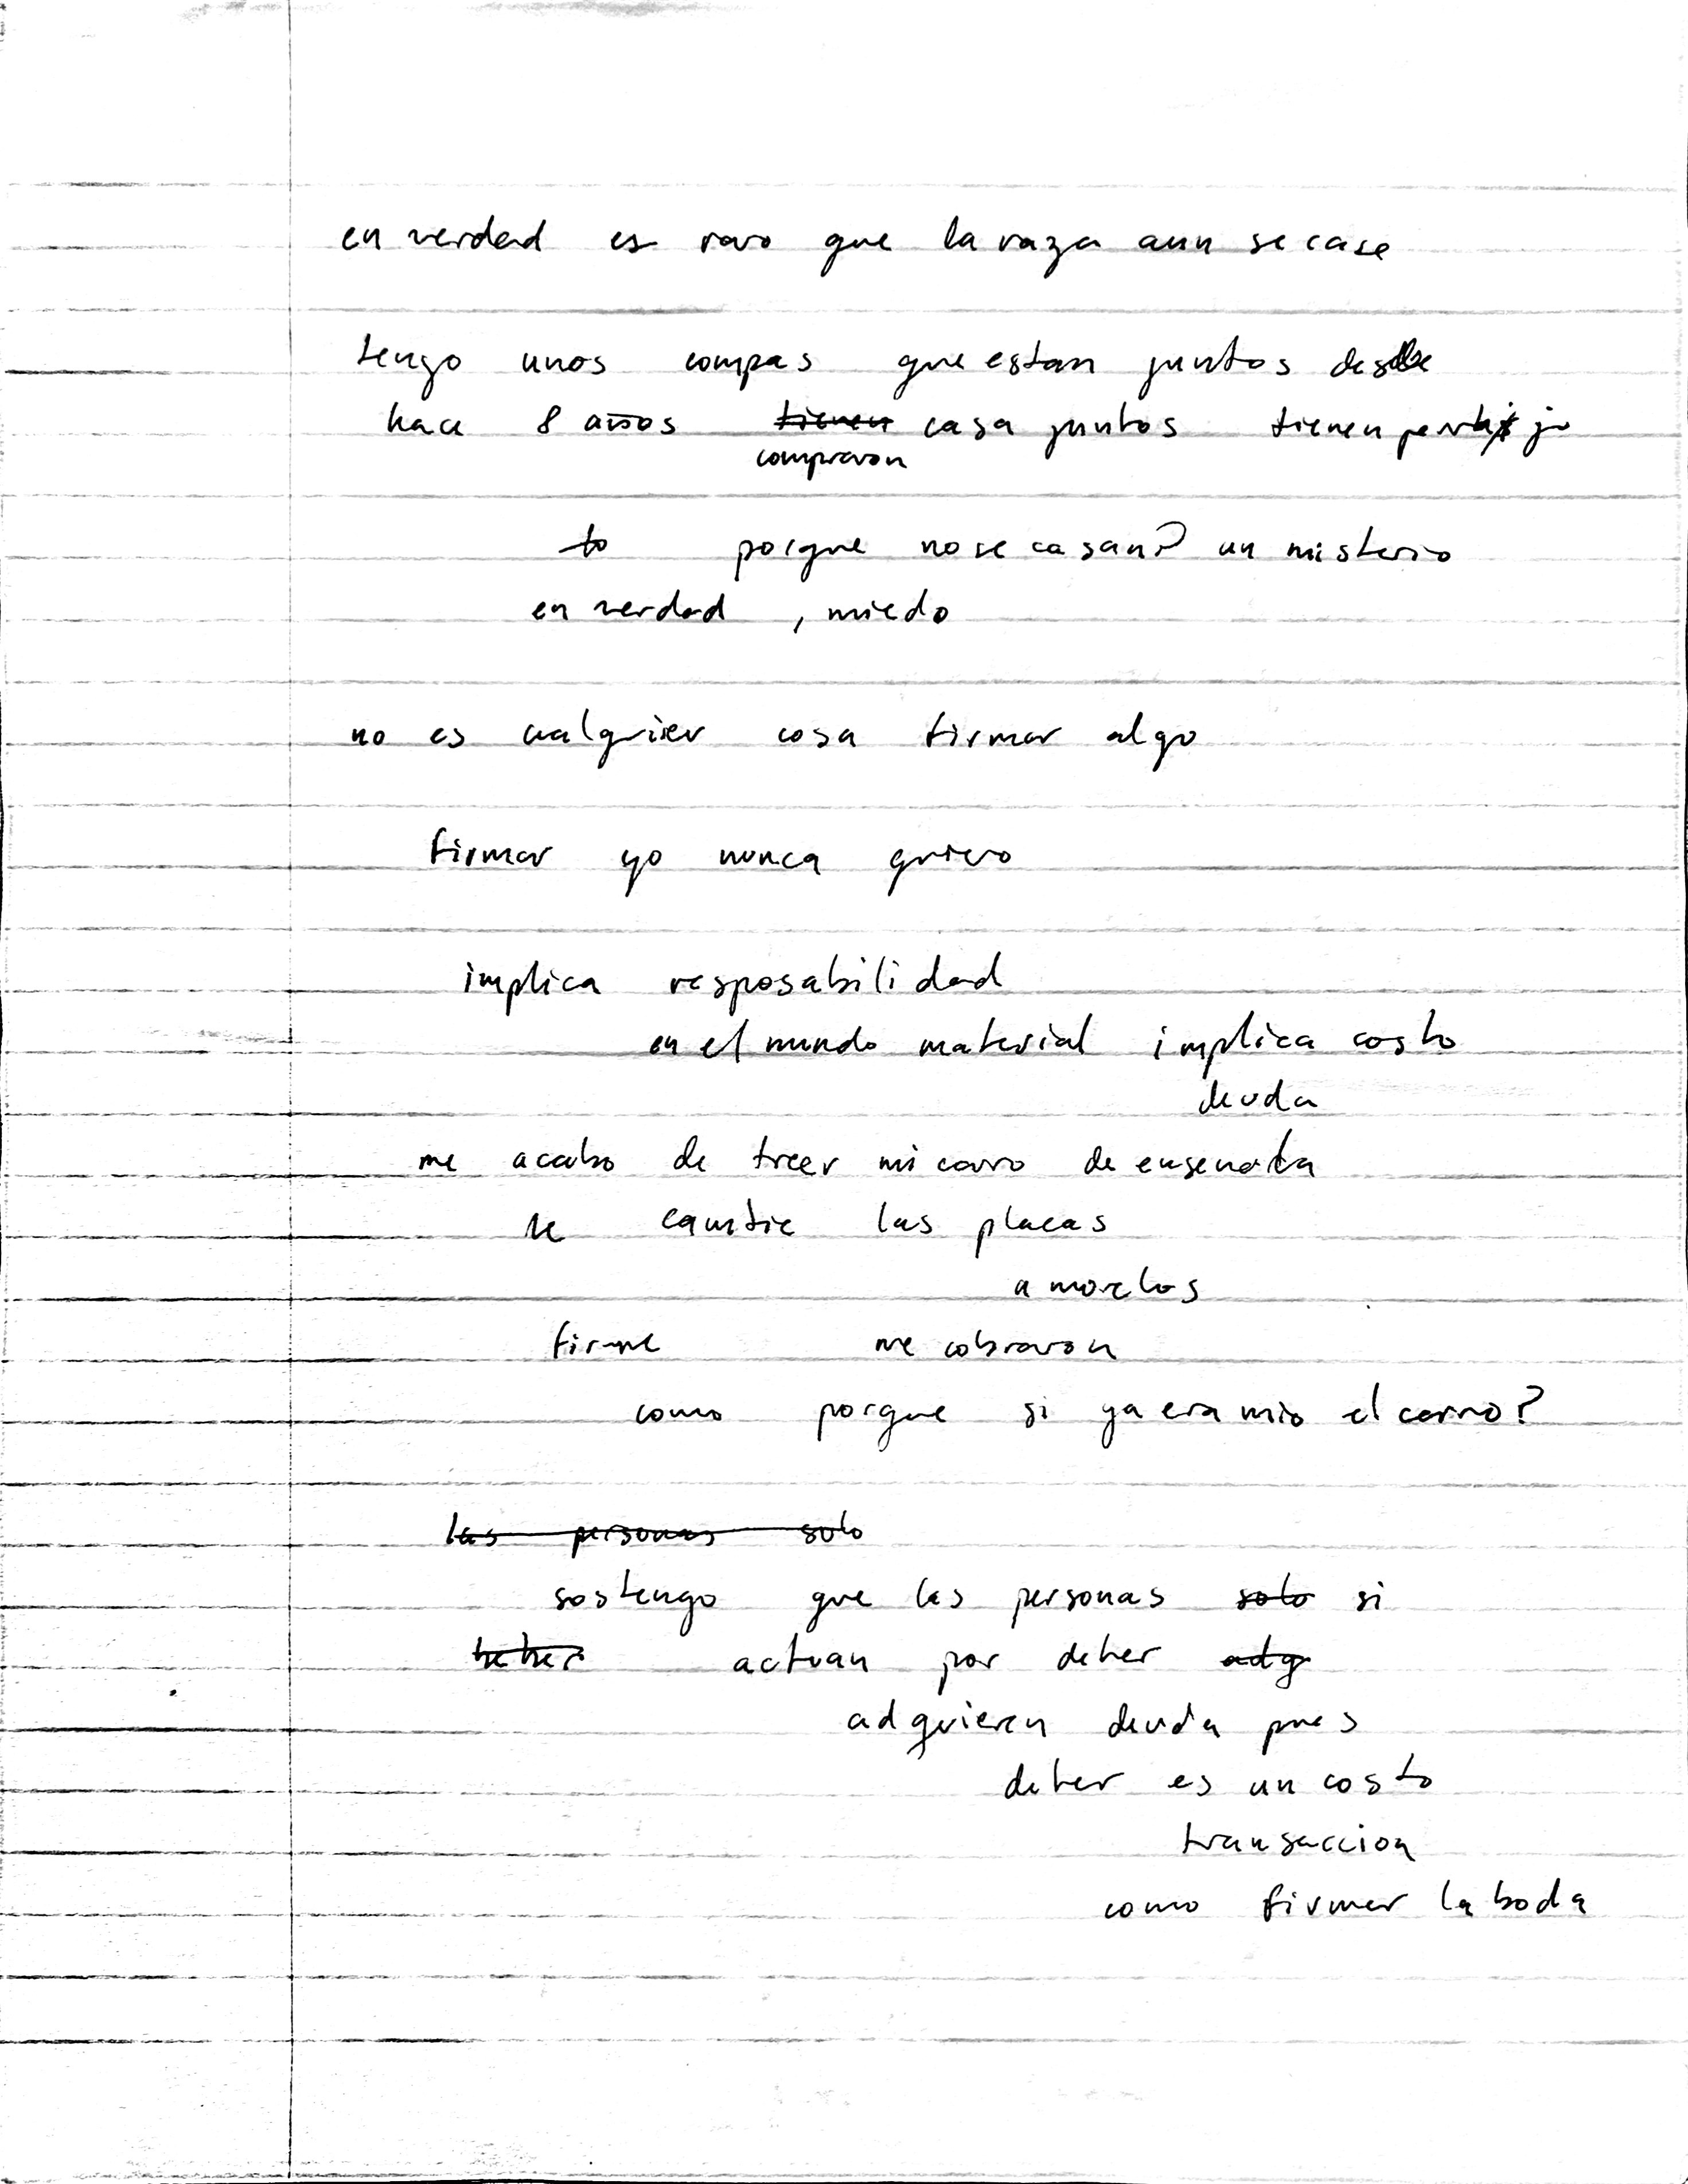 en verdad es raro que la raza aun se case
tengo unos compas que estan juntos desde
hace 8 años tienen casa juntos tienen perrhijo
compraron
to porque no se casan? un misterio
en verdad , miedo
no es cualquier cosa firmar algo
firmar yo nunca quiero
implica resposabilidad
en el mundo material implica costo
deuda
me acabo de traer mi carro de ensenada
le cambie las placas
a morelos
firme me cobraron
como porque si ya era mio el carro?
las personas solo
sostengo que las personas solo si
actuan por deber adq
adquieren deuda pues
deber es un costo
transaccion
como firmar la boda